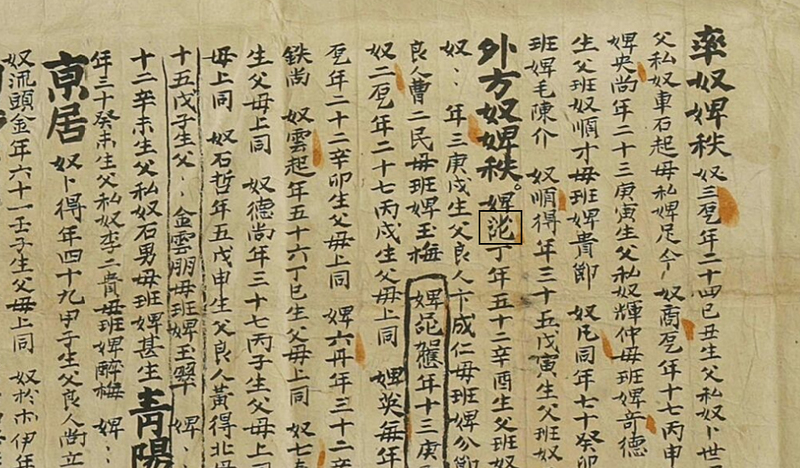 率奴婢秩 奴三 年二十四己丑生父私奴卜世
父私奴車石起母私婢足今 奴 年十七丙申
婢央尚年二十三庚寅生父私奴輝仲母班婢奇德
生父班奴順才母班婢貴節 奴 同年七十癸卯
班婢毛陳介 奴順得年三十五戊寅生父班奴
外方奴婢秩 婢 丁年五十二辛酉生父班奴
奴 年三庚戌生父良人卞成仁母班婢
良人曹二民母班婢玉梅 婢 年十三庚
奴二 年二十七丙戌生父母上同 婢英每年
年二十二辛卯生父母上同 婢六丹年三十二辛
鉄尚 奴雲起年五十六丁巳生父母上同 奴七
生父母上同 奴德尚年三十七丙子生父母上同
母上同 奴石哲年五戊申生父良人黃得北母
十五戊子生父 金雲朋母班婢玉翠 婢
十二辛未生父私奴石男母班婢甚生 青陽
年三十癸未生父私奴李二貴母班婢 梅 婢
京居 奴卜得年四十九甲子生父良人 立
奴流頭金年六十一壬子生父母上同 奴 年